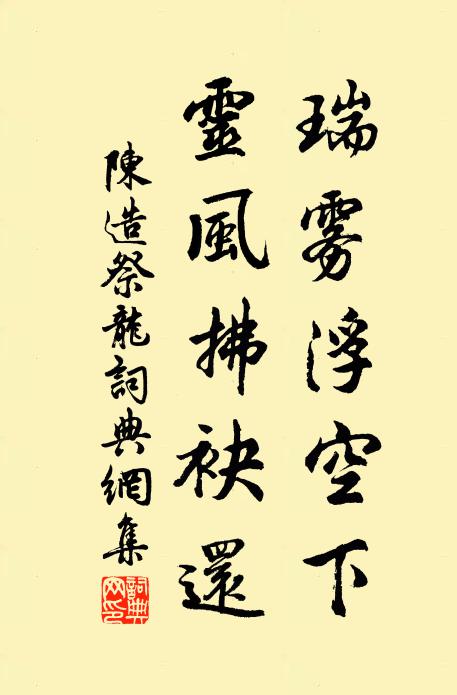 瑞雾浮空下
靈風拂袂還
陳造祭龍詞典網集
詞典网印